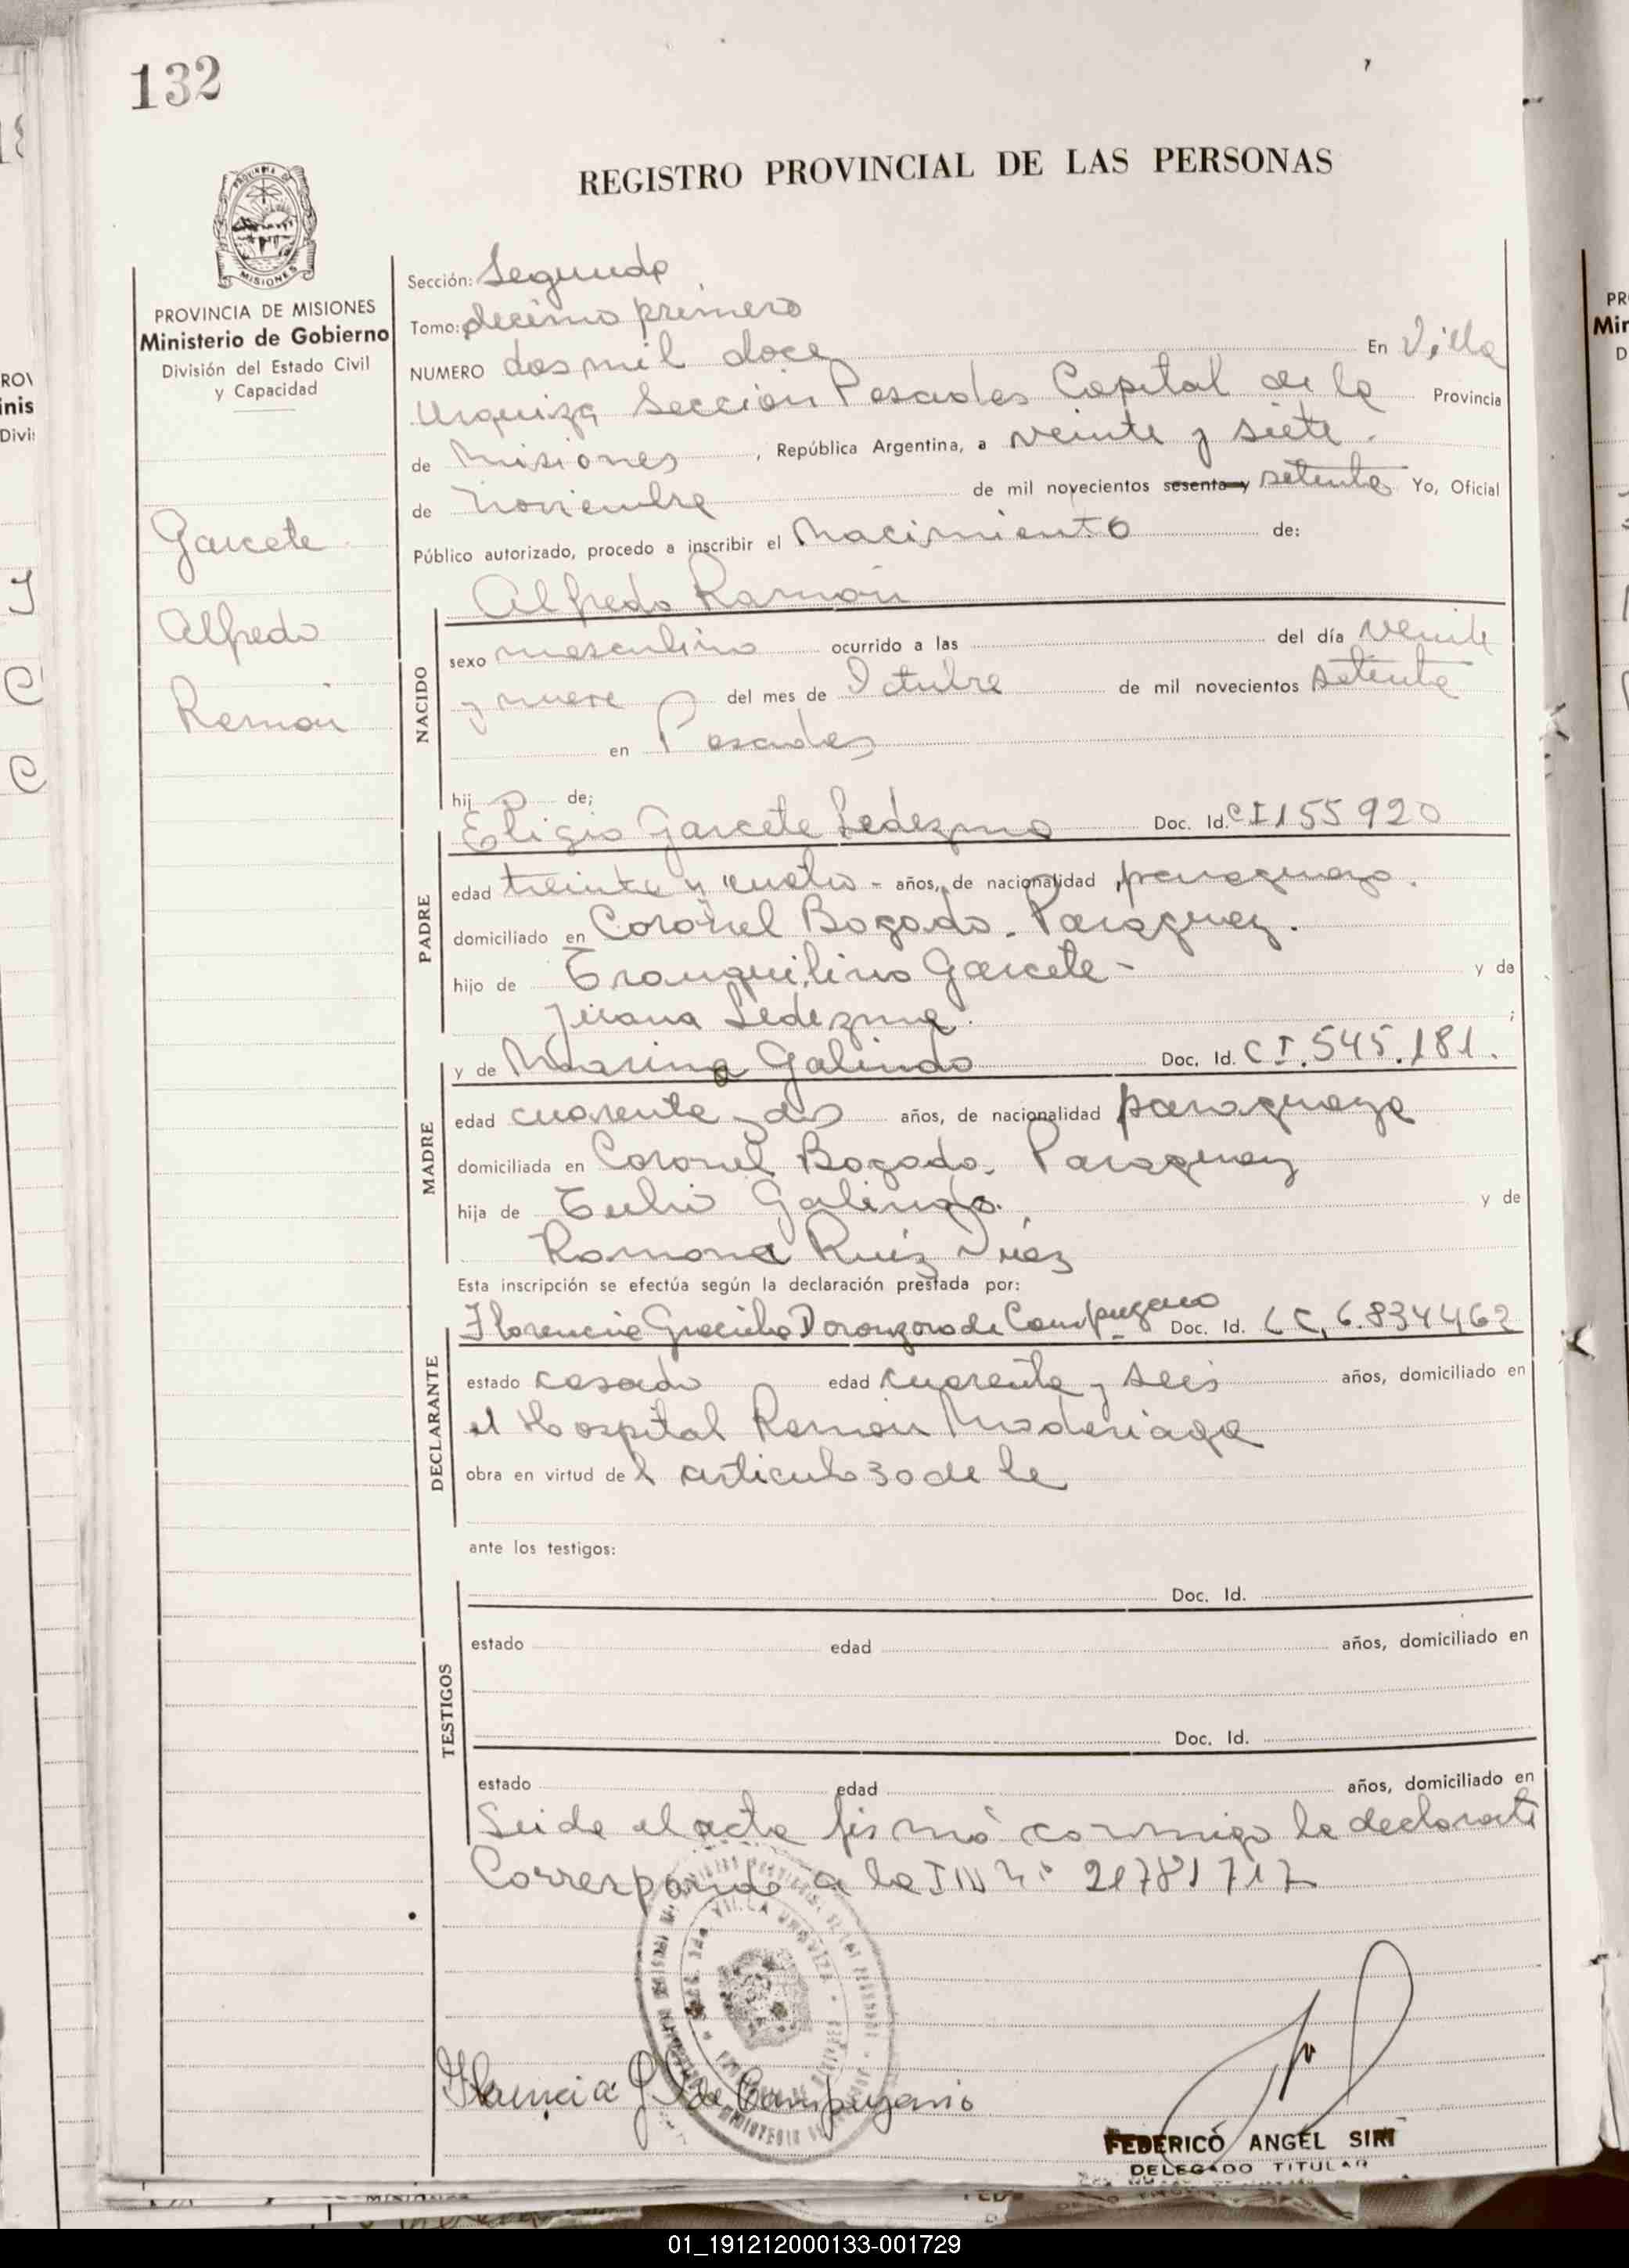 132
REGISTRO PROVINCIAL DE LAS PERSONAS
MISIONES
PROVINCIA DE MISIONES
Ministerio de Gobierno
División del Estado Civil
y Capacidad
Garcete
Alfredo
Ramón
Sección: Segunda
Tomo: decimo primero
NUMERO dos mil doce En Villa
Urquiza Sección Posadas Capital de la Provincia
de Misiones, República Argentina, a veinte y siete.
de Noviembre de mil novecientos sesenta y setenta Yo, Oficial
Público autorizado, procedo a inscribir el Nacimiento de:
Alfredo Ramón
NACIDO
sexo masculino ocurrido a las del día veinte
y nueve del mes de Octubre de mil novecientos setenta
en Posadas
hijo de;
Eligio Garcete Ledezma Doc. Id. CI 155920
PADRE
edad treinta y cuatro - años, de nacionalidad paraguayo.
domiciliado en Coronel Bogado. Paraguay.
hijo de Tranquilino Garcete - y de
Juana Ledezma. ;
y de Marina Galindo Doc. Id. C I. 545.181.
MADRE
edad cuarenta y dos años, de nacionalidad paraguaya
domiciliada en Coronel Bogado. Paraguay
hija de Tulio Galindo. y de
Romona Ruiz Diaz
Esta inscripción se efectúa según la declaración prestada por:
Florencia Graciela Doronzoro de Campuzano Doc. Id. L C. 6.834462
DECLARANTE
estado casado edad cuarenta y seis años, domiciliado en
el Hospital Ramón Madariaga
obra en virtud del articulo 30 de le
ante los testigos:
TESTIGOS
Doc. Id.
estado edad años, domiciliado en
Doc. Id.
estado edad años, domiciliado en
Leida el acta firmó conmigo la declarante
Corresponde a la I N N° 21781717
VILLA URQUIZA
Florencia G D de Campuzano
FEDERICO ANGEL SIRI
DELEGADO TITULAR
01_191212000133-001729